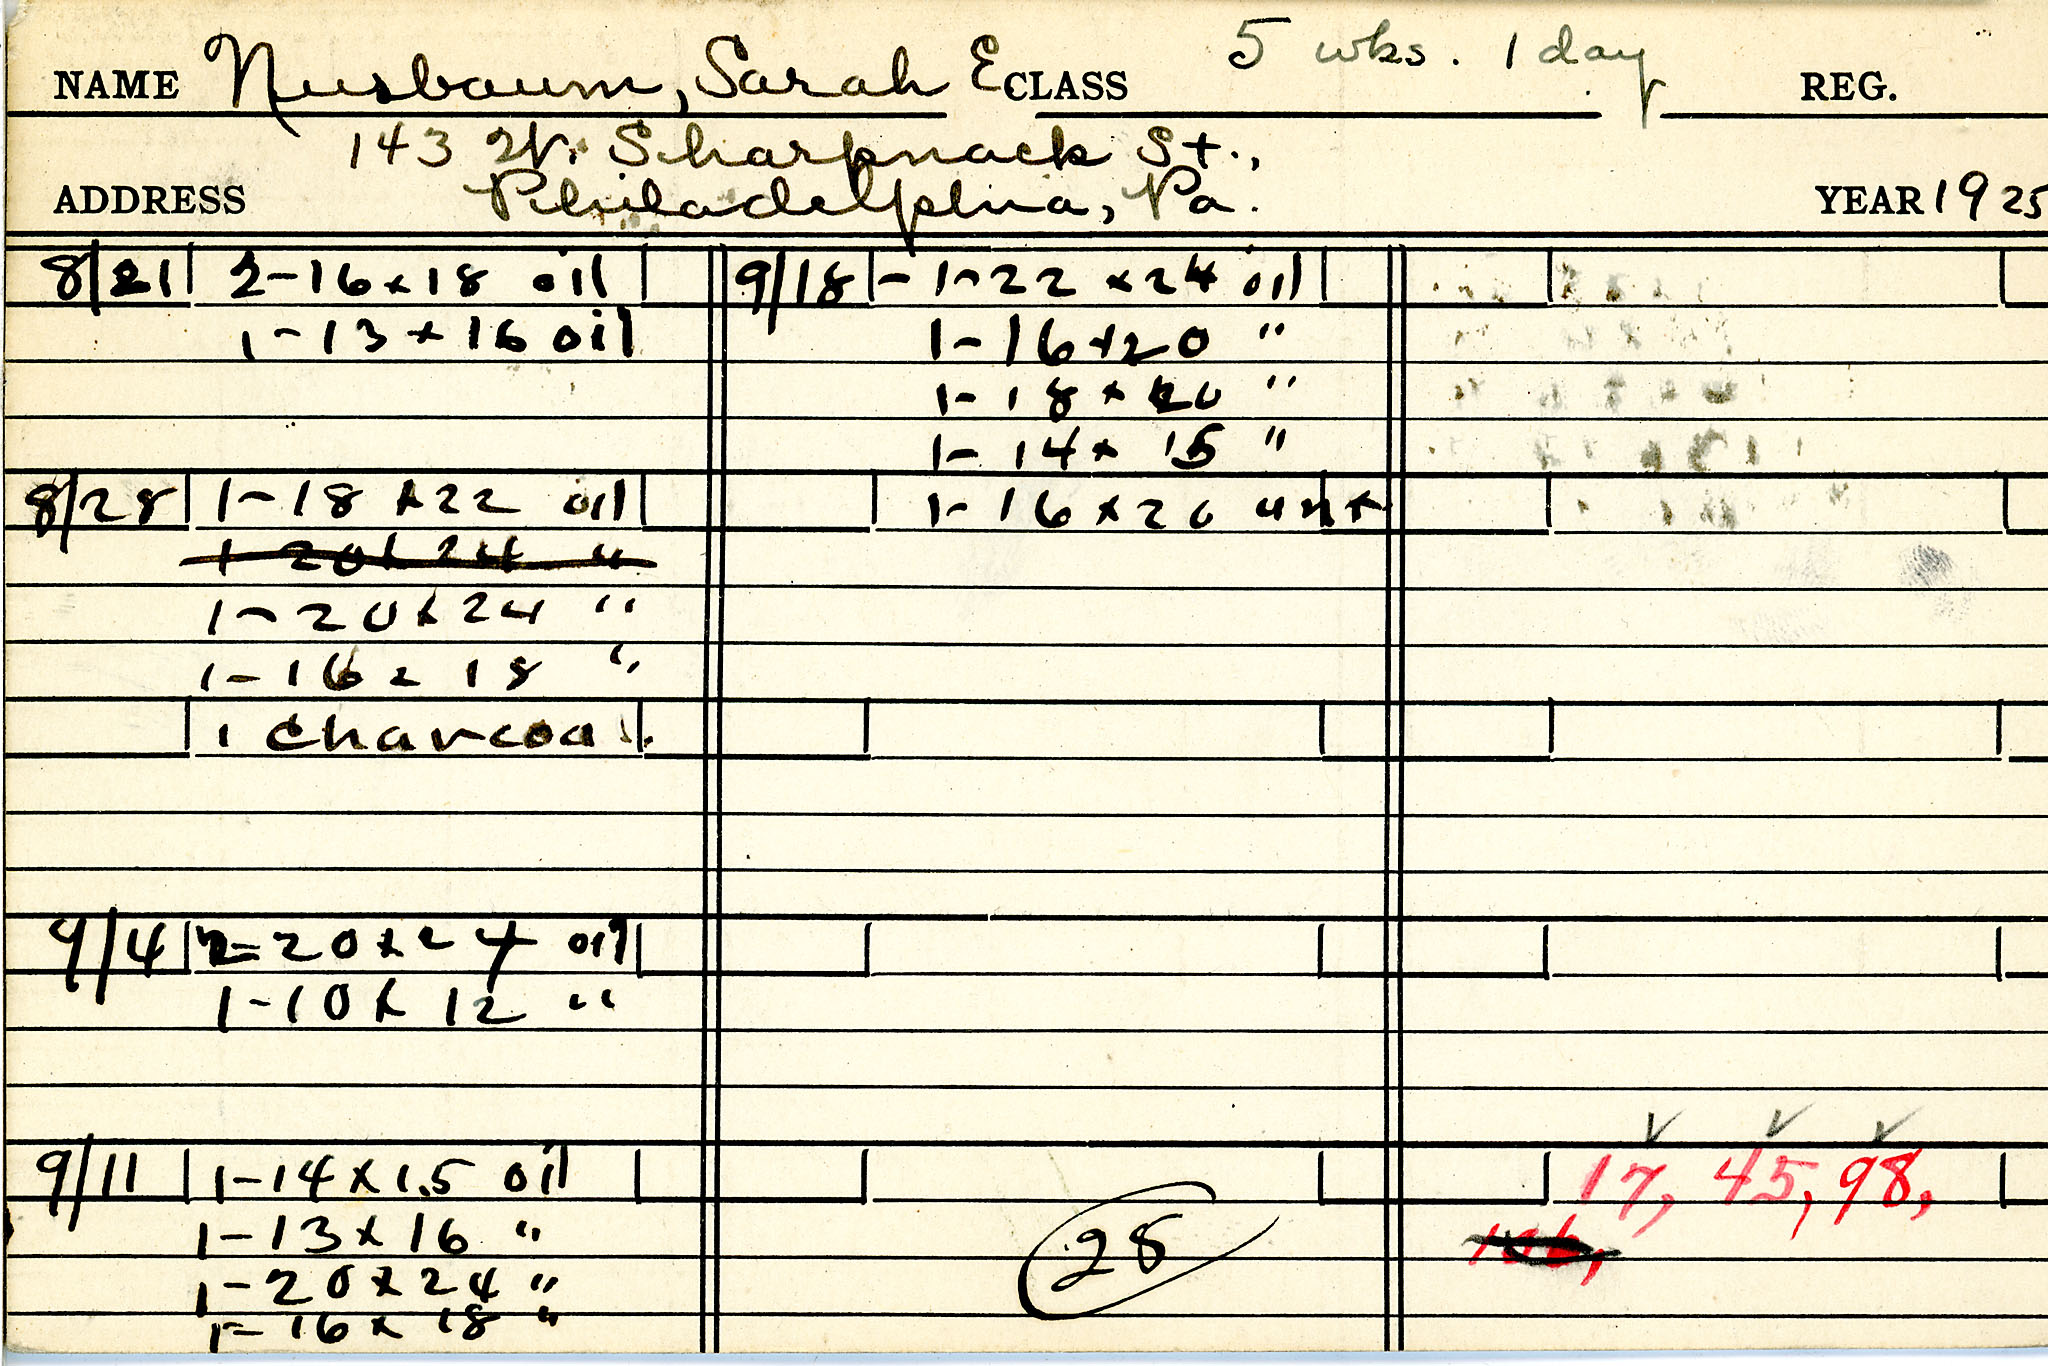 NAME Nusbaum, Sarah E CLASS 5 wks. 1 day REG.
143 W. Sharpnack St.,
ADDRESS Philadelphia, Pa. YEAR 1925
8/21 2-16x18 oil
1-13x16 oil
8/28 1-18x22 oil
1 20x24 "
1-20x24 "
1-16x18 "
1 charcoal
9/4 2-20x24 oil
1-10x12 "
9/11 1-14x15 oil
1-13x16 "
1-20x24 "
1-16x18 "
9/18 - 1-22x24 oil
1-16x20 "
1-18x20 "
1-14x15 "
1-16x20
28
17, 45, 98,